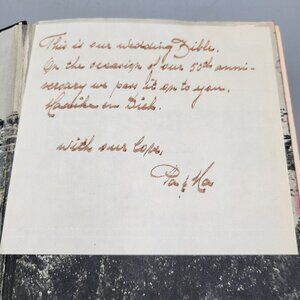 This is our wedding Bible.
On the occasion of our 50th anni-
versary we pass it on to you,
en Dick.
with our love,
Pa & Ma